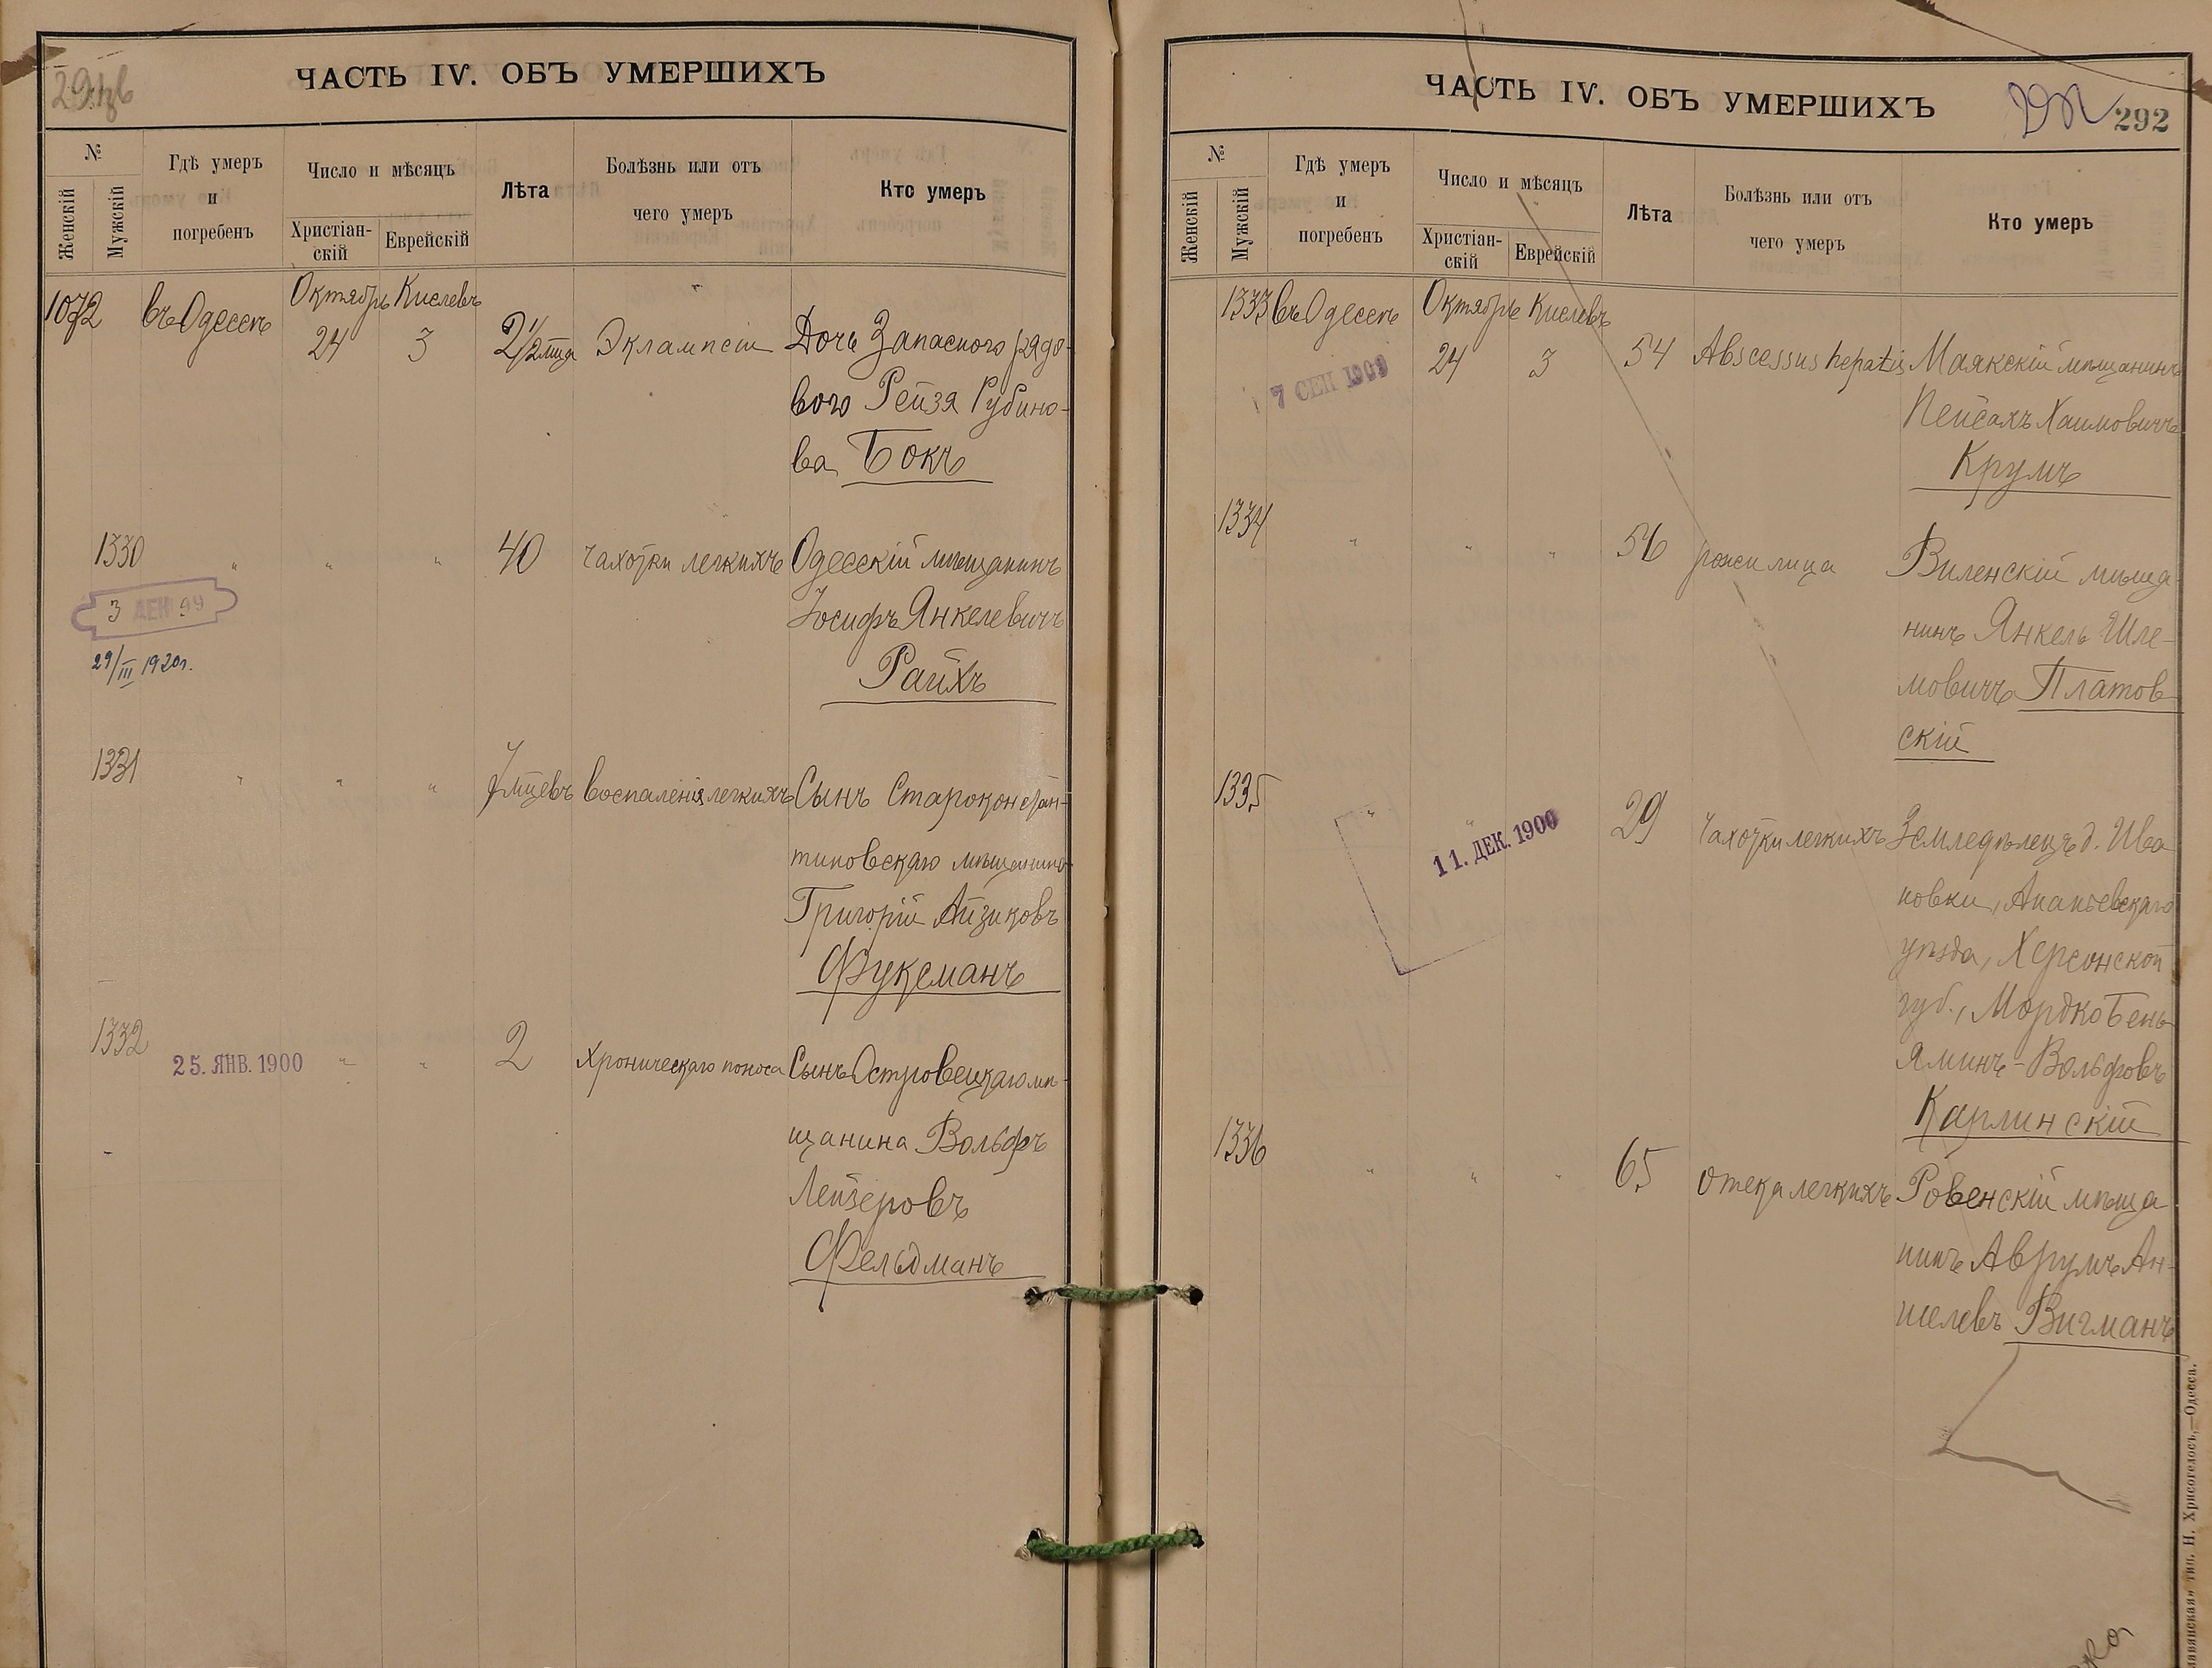 ЧАСТЬ IV. ОБЪ УМЕРШИХЪ
№
Женскій
Мужскій
Гдѣ умеръ
и
погребенъ
Число и мѣсяцъ
Христіан-
скій
Еврейскій
Лѣта
Болѣзнь или отъ
чего умеръ
Кто умеръ
1072 въ Одессѣ Октябрь Кислевъ
24 3 2 1/2 мца Эклампсіи Дочь Запаснаго рядо-
вого Рейзя Рубино-
ва Бокъ
1330 " " " 40 чахотки легкихъ Одесскій мѣщанинъ
3 ДЕК 99
Іосифъ Янкелевичъ
29/III 1920г.
Райхъ
1331 " " " 7 мцевъ воспаленія легкихъ Сынъ Староконстан-
тиновскаго мѣщанина
Григорій Айзиковъ
Фуксманъ
1332 25. ЯНВ. 1900 " " 2 Хроническаго поноса Сынъ Островецкаго мѣ-
щанина Вольфъ
Лейзеровъ
Фельдманъ
ЧАСТЬ IV. ОБЪ УМЕРШИХЪ
292
№
Женскій
Мужскій
Гдѣ умеръ
и
погребенъ
Число и мѣсяцъ
Христіан-
скій
Еврейскій
Лѣта
Болѣзнь или отъ
чего умеръ
Кто умеръ
1333 въ Одессѣ Октябрь Кислевъ
24 3 54 Abscessus hepatis Маякскій мѣщанинъ
7 СЕН 1909
Пейсахъ Хаимовичъ
Крумъ
1334 " " " 56 рожи лица Виленскій мѣща-
нинъ Янкель Шле-
мовичъ Платов-
скій
1335 " " 29 чахотки легкихъ Земледѣлецъ д. Ива
11. ДЕК. 1900
новки, Ананьевскаго
уѣзда, Херсонской
губ., Мордко Бень-
яминъ-Вольфовъ
Карлинскій
1336 " " " 65 отека легкихъ Ровенскій мѣща
нинъ Аврумъ Ан-
шелевъ Вигманъ
тип. Н. Хрисогелосъ,—Одесса.